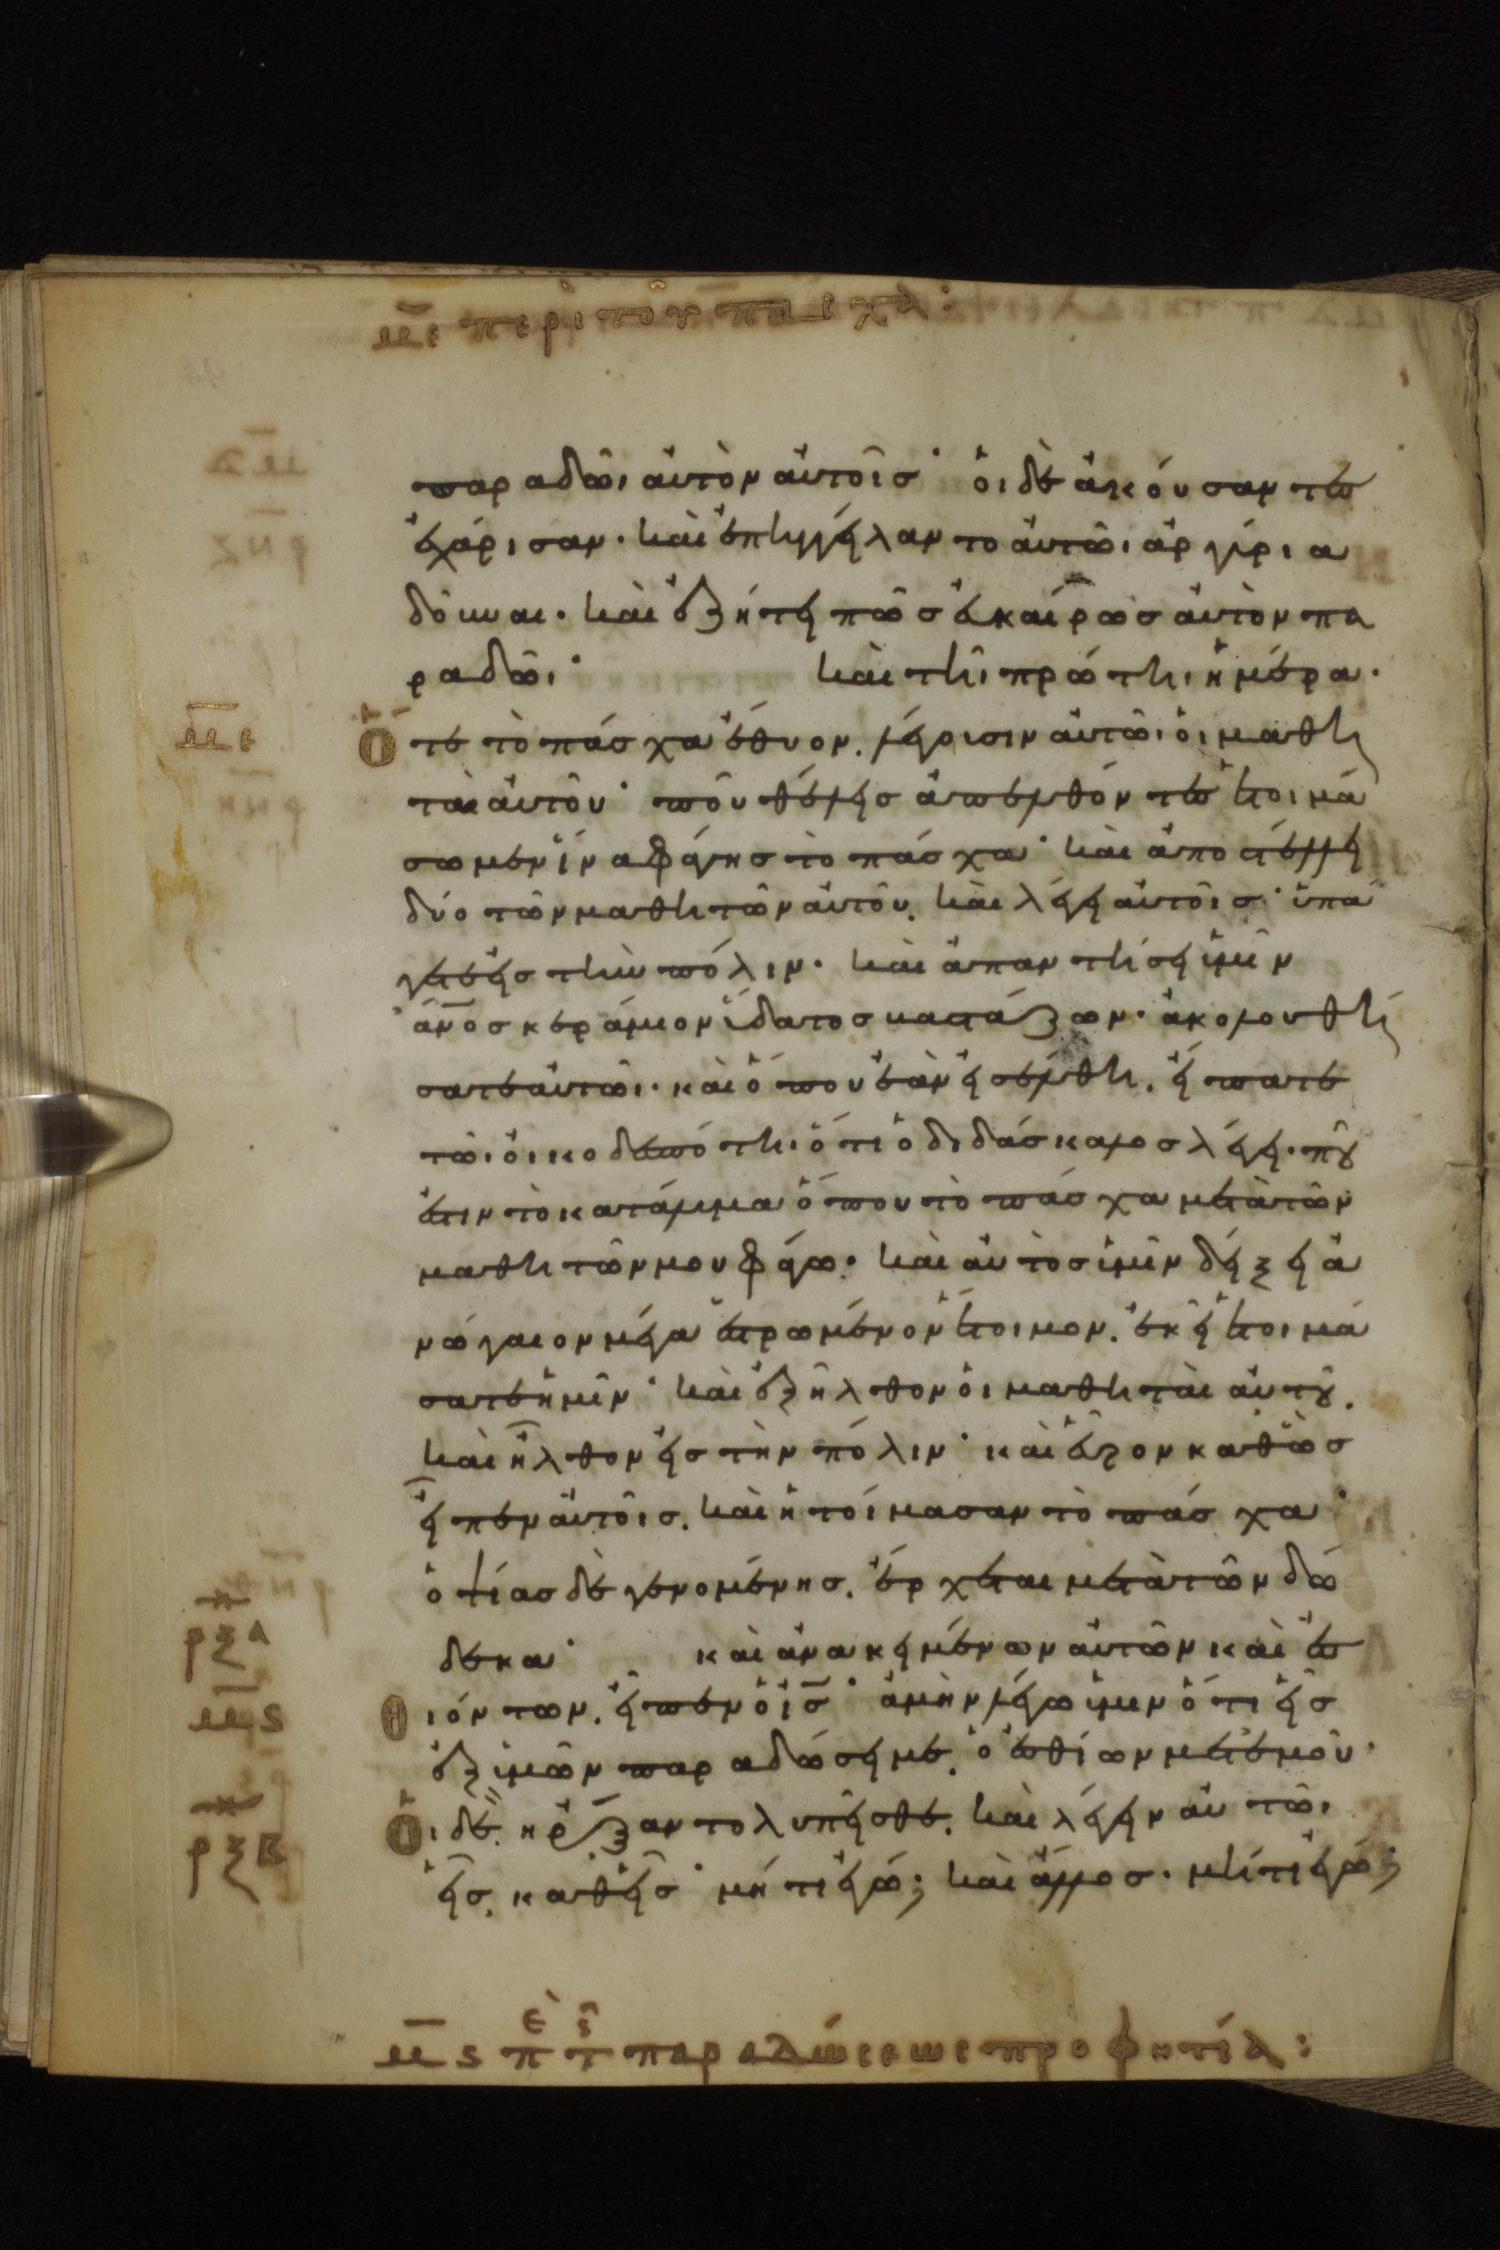 με περὶ τοῦ πάσχα:
παραδῶι ἀυτὸν ἀυτοῖσ· ὁι δὲ ἀκούσαντεσ
ἐχάρισαν· καὶ ἐπηγγείλαντο ἀυτῶι ἀργύρια
δοῦναι· καὶ ἐζήτει πῶσ ἐυκαίρωσ ἀυτὸν πα
ραδῶι· καὶ τῆι πρώτηι ἡμέρα·
ὅτε τὸ πάσχα ἔθυον. λέγουσιν ἀυτῶι ὁι μαθη
ταὶ ἀυτοῦ· ποῦ θέλεισ ἀπελθόντεσ ἑτοιμά
σωμεν ἵνα φάγησ τὸ πάσχα· καὶ ἀποστέλλει
δύο τῶν μαθητῶν ἀυτοῦ. καὶ λέγει ἀυτοῖσ· ὑπά
γετε εἰσ τὴν πόλιν· καὶ ἀπαντήσει ὑμῖν
ἄνοσ κεράμιον ὕδατοσ βαστάζων· ἀκολουθή
σατε ἀυτῶι· καὶ ὅπου ἐὰν εἰσέλθη. εἴπατε
τῶι ὀικοδεσπότηι ὅτι ὁ διδάσκαλοσ λέγει· ποῦ
ἐστιν τὸ κατάλυμα ὅπου τὸ πάσχα μετὰ τῶν
μαθητῶν μου φάγω· καὶ ἀυτὸσ ὑμῖν δείξει ἀ
νώγαιον μέγα ἐστρωμένον ἕτοιμον. ἐκεῖ ἑτοιμά
σατε ἡμῖν· καὶ ἐξῆλθον ὁι μαθηταὶ ἀυτοῦ.
καὶ ἦλθον εἰσ τὴν πόλιν· καὶ εὗρον καθὼσ
εἶπεν ἀυτοῖσ. καὶ ἡτοίμασαν τὸ πάσχα·
ὀψίασ δὲ γενομένησ. ἔρχεται μετὰ τῶν δώ
δεκα· καὶ ἀνακειμένων ἀυτῶν καὶ ἐσ
θιόντων. εἶπεν ὁ ισ· ἀμὴν λέγω ὑμῖν ὅτι εἷσ
ἐξ ὑμῶν παραδώσει με. ὁ ἐσθίων μετ ἐμοῦ·
Οι δὲ ἤρξαντο λυπεῖσθε. καὶ λέγειν ἀυτῶι
εἷσ. καθεῖσ· μήτι ἐγώ; καὶ ἄλλοσ· μήτι ἐγώ;
με
ρξα
μς
ρξβ
μς πε τς παραδώσεωσ προφητία: